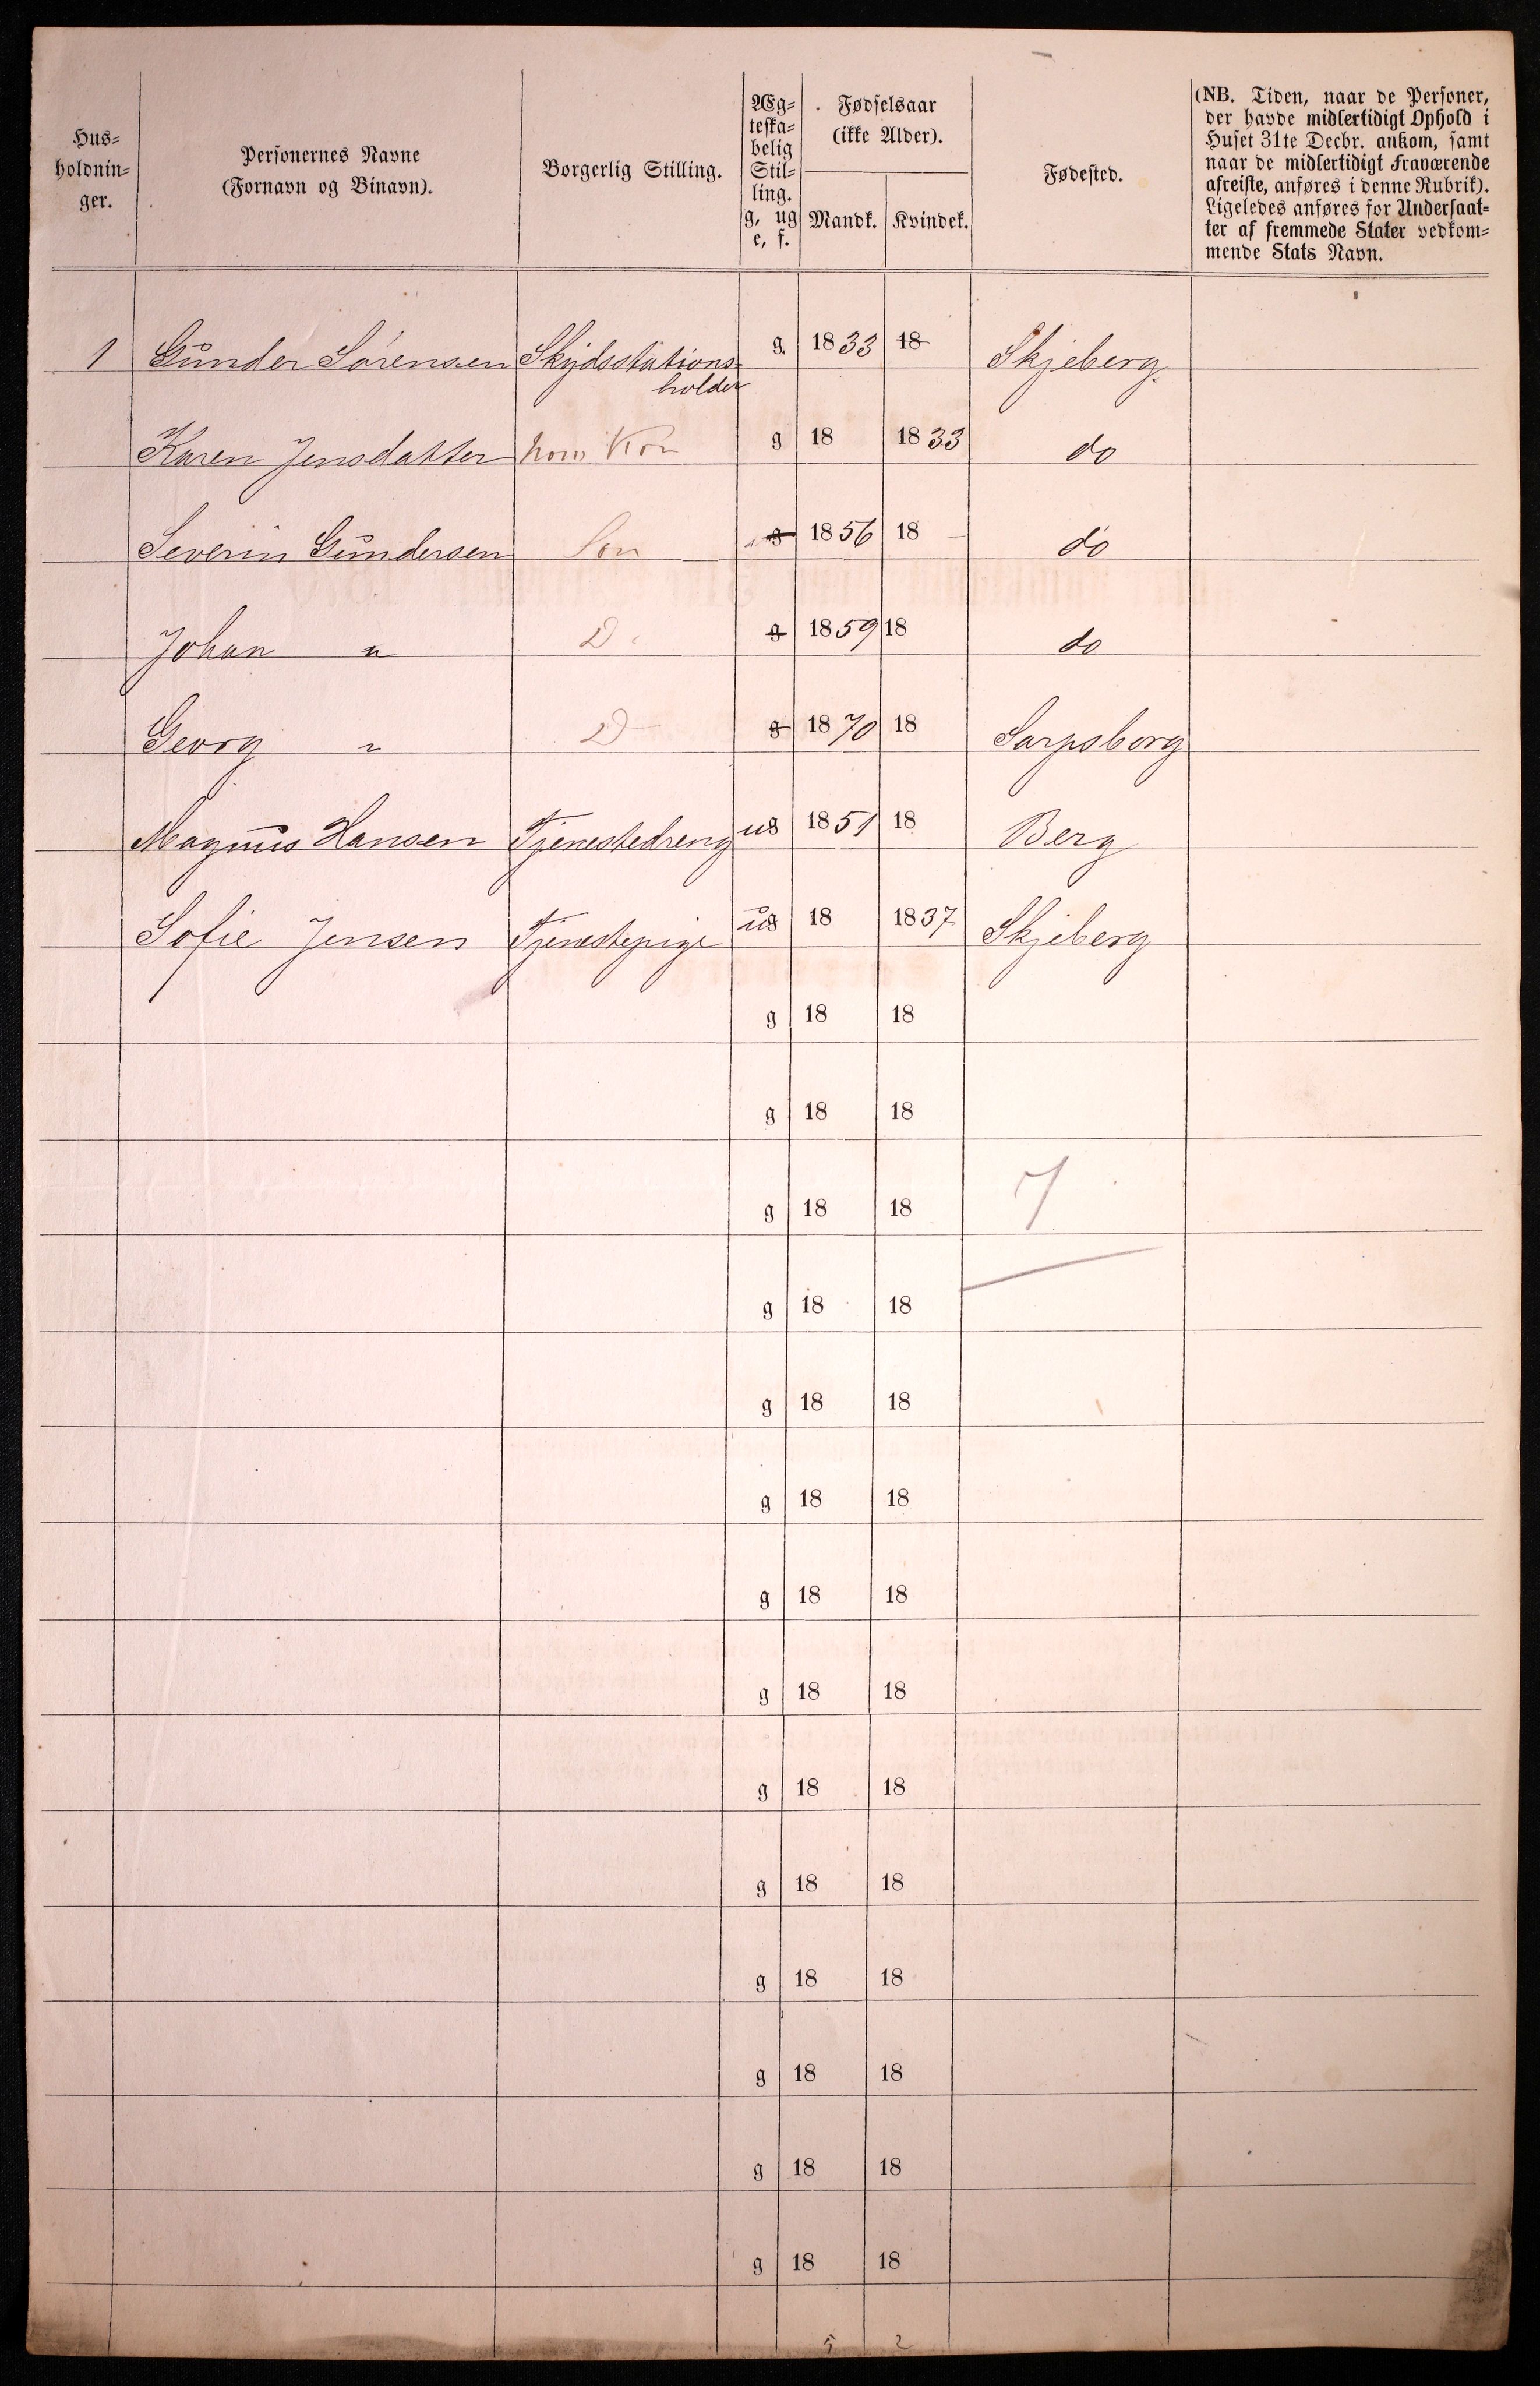 Hus-
holdnin-
ger.
Personernes Navne
(Fornavn og Binavn).
Borgerlig Stilling.
Æg-
teska-
belig
Stil-
ling.
g, ug
e, f.
Fødselsaar
(ikke Alder).
Mandk. Kvindek.
Fødested.
(NB. Tiden, naar de Personer,
der havde midlertidigt Ophold i
Huset 31te Decbr. ankom, samt
naar de midlertidigt Fraværende
afreiste, anføres i denne Rubrik).
Ligeledes anføres for Undersaat-
ter af fremmede Stater vedkom-
mende Stats Navn.
1 Gunder Sørensen Skydsstations- g. 1833 18 Skjeberg.
holder
Karen Jensdatter hans Kon g 18 1833 do
Severin Gundersen Søn g 1856 18 do
Johan " D. g 1859 18 do
Georg " D g 1870 18 Sarpsborg
Magnus Hansen Tjenestedreng ug 1851 18 Berg
Sofie Jensen Tjenestepige ug 18 1837 Skjeberg
g 18 18
g 18 18
g 18 18 7
g 18 18
g 18 18
g 18 18
g 18 18
g 18 18
g 18 18
g 18 18
g 18 18
g 18 18
g 18 18
g 18 18
5 2